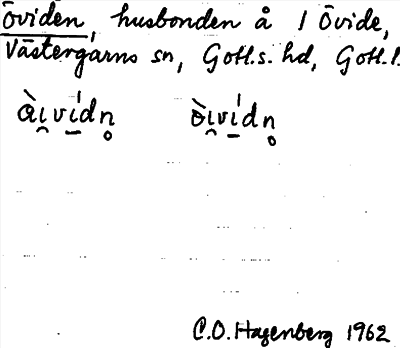 Öviden, husbonden å 1 Övide,
Västergarns sn, Gotl.s. hd, Gotl.l.
ài̯ví̠dn̥ òi̯ví̠dn̥
C.O. Hagenberg 1962